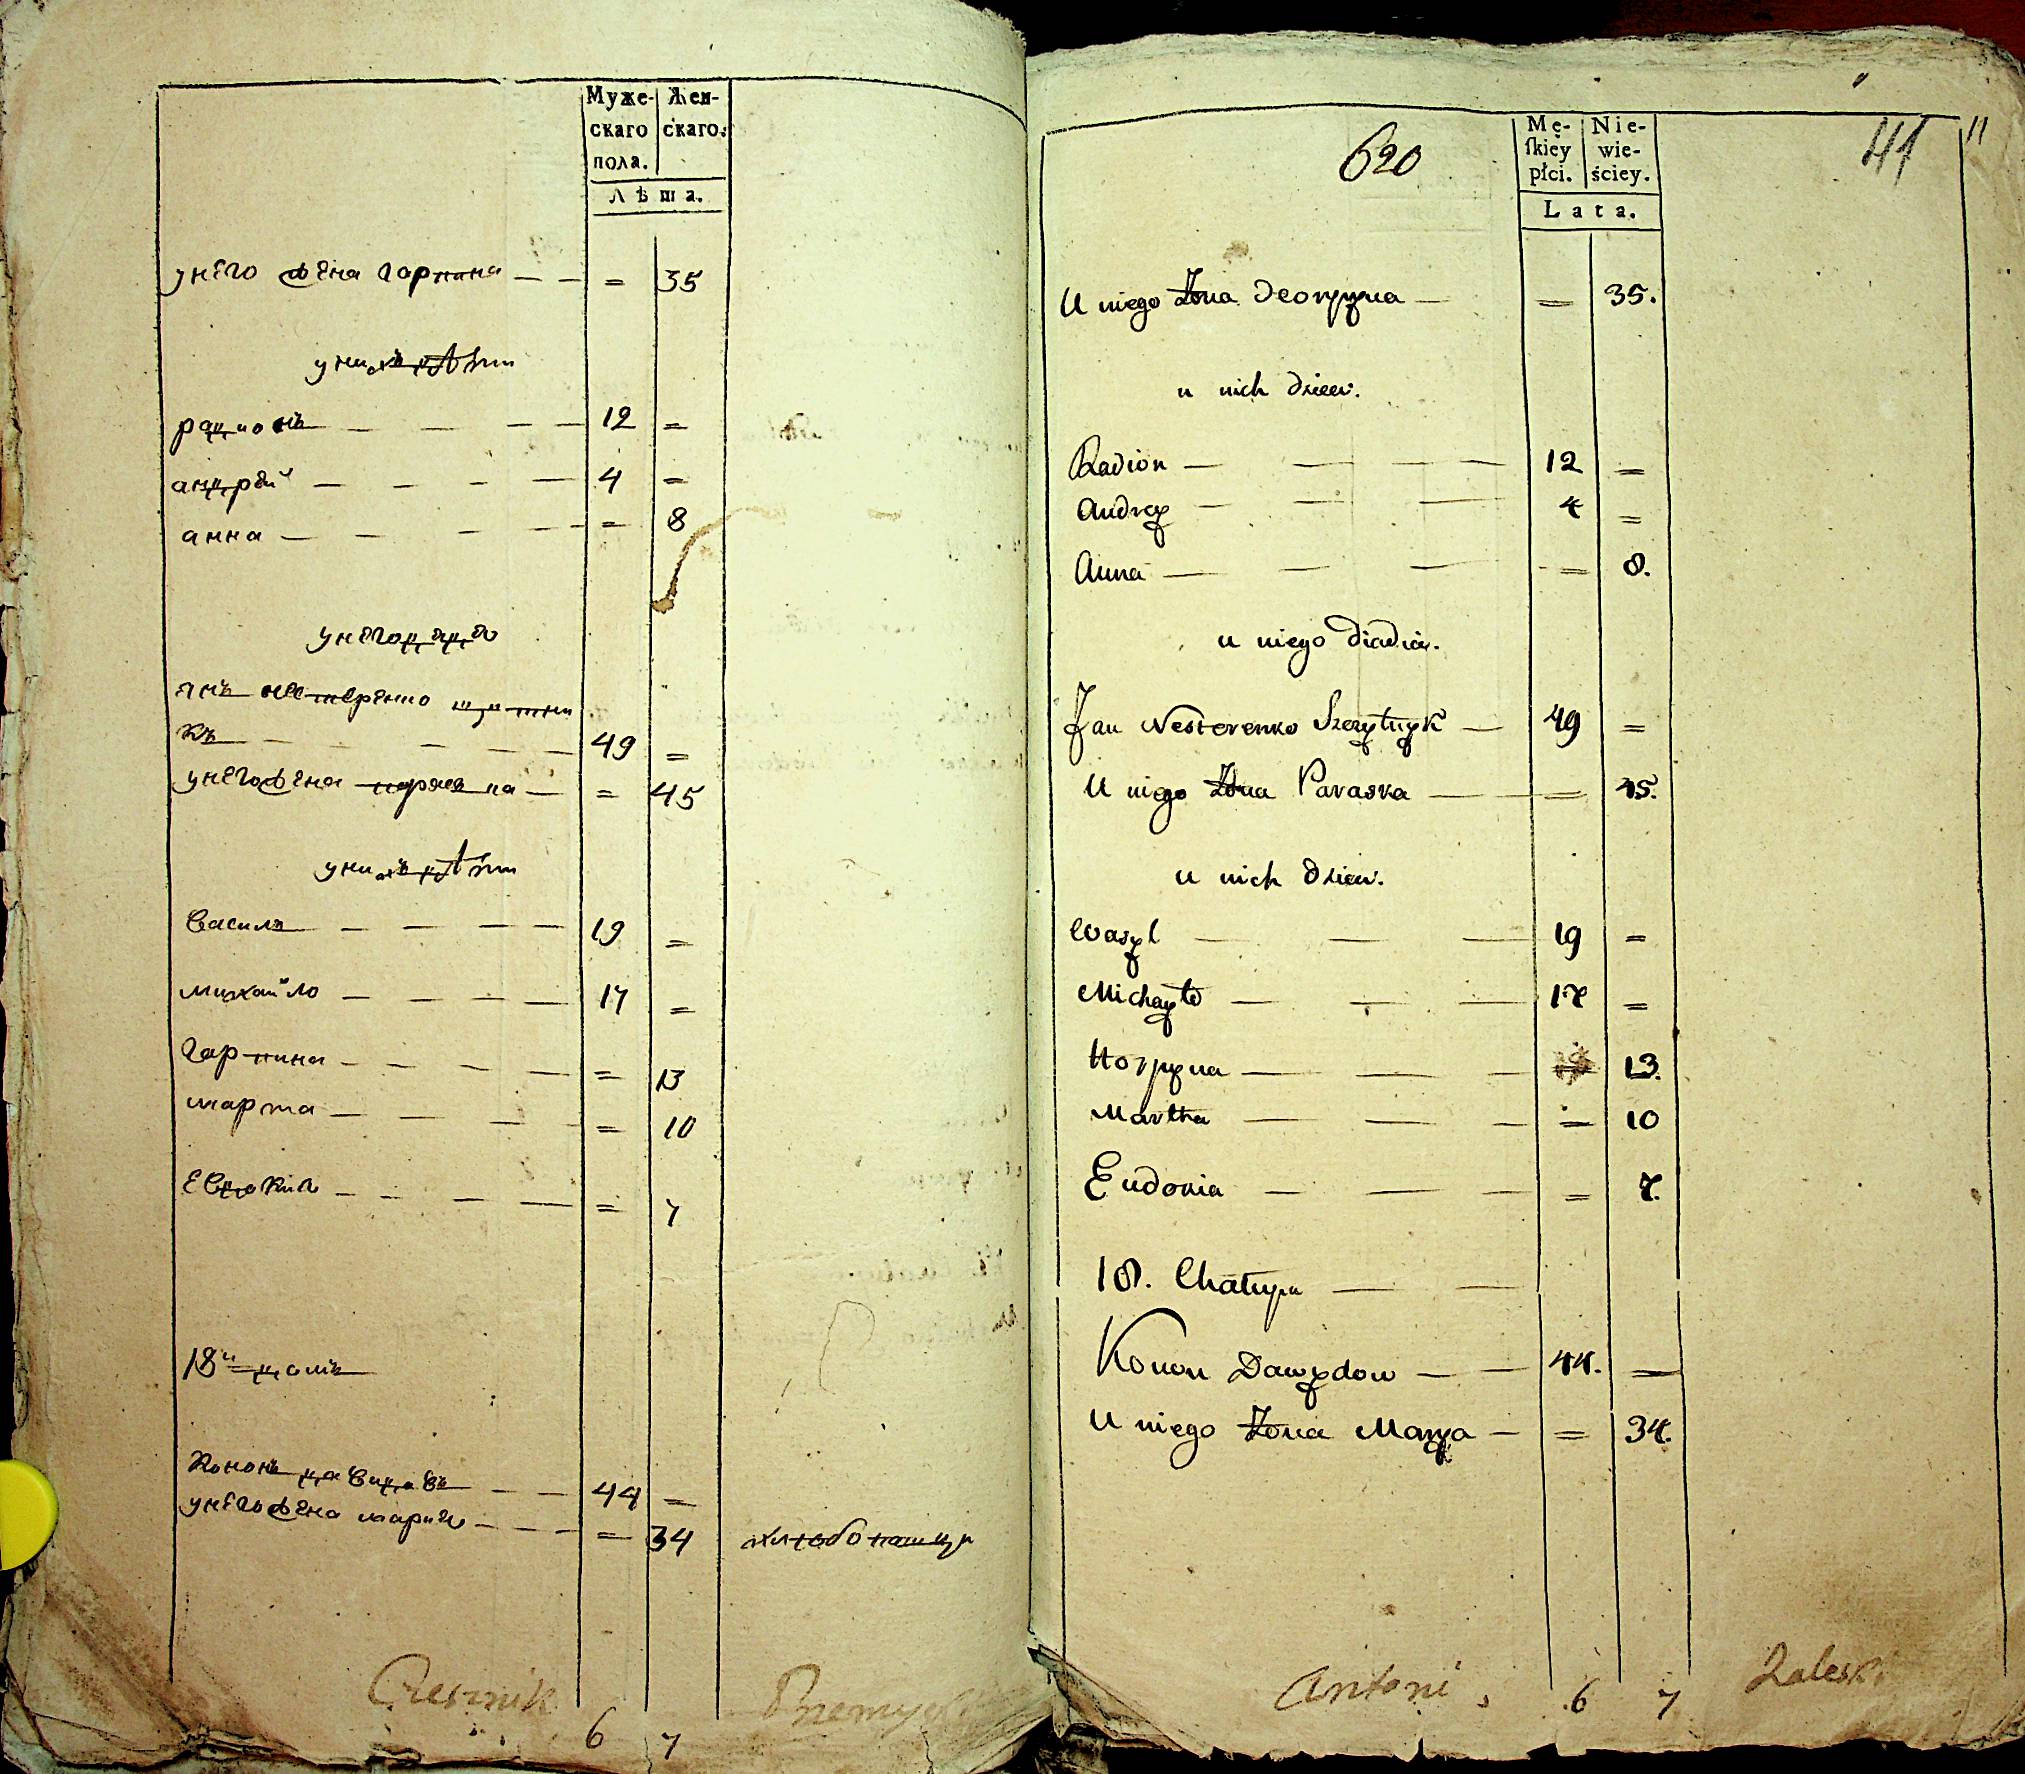 Муже-
скаго
пола.
Жен-
скаго.
Лѣта.
унего жена гарпина — — = 35
унихъ дѣти
радионъ — — — — 12 =
андрей — — — — 4 =
анна — — — — = 8
унего дядя
янъ нестеренко
къ — — — — — 49 =
унего жена параска — = 45
унихъ дѣти
василь — — — — 19 =
михайло — — — — 17 =
гарпина — — — — = 13
марта — — — — = 10
евдокия — — — — = 7
18й домъ
кононъ давидовъ — — 44 =
унего жена мария — — — = 34 хлебопашцы
Czesznik
6 7
620
Mę-
ſkiey
płci.
Nie-
wie-
ściey.
41
11
Lata.
U niego Żona — = 35.
u nich dzieci.
Radion — — — — 12 =
Andrey — — — 4 =
Anna — — — = 8.
u niego diadia.
Jan Nesterenko — 49 =
U niego Żona Paraska — — = 45.
u nich dzieci.
Wasyl — — — 19 =
Michayło — — — 17 =
Horpyna — — — 13.
Martha — — — = 10
Eudokia — — — = 7.
18. Chałupa — —
Konon Dawydow — — 44. =
U niego Żona Marya — = 34.
Antoni 6 7 Zaleski